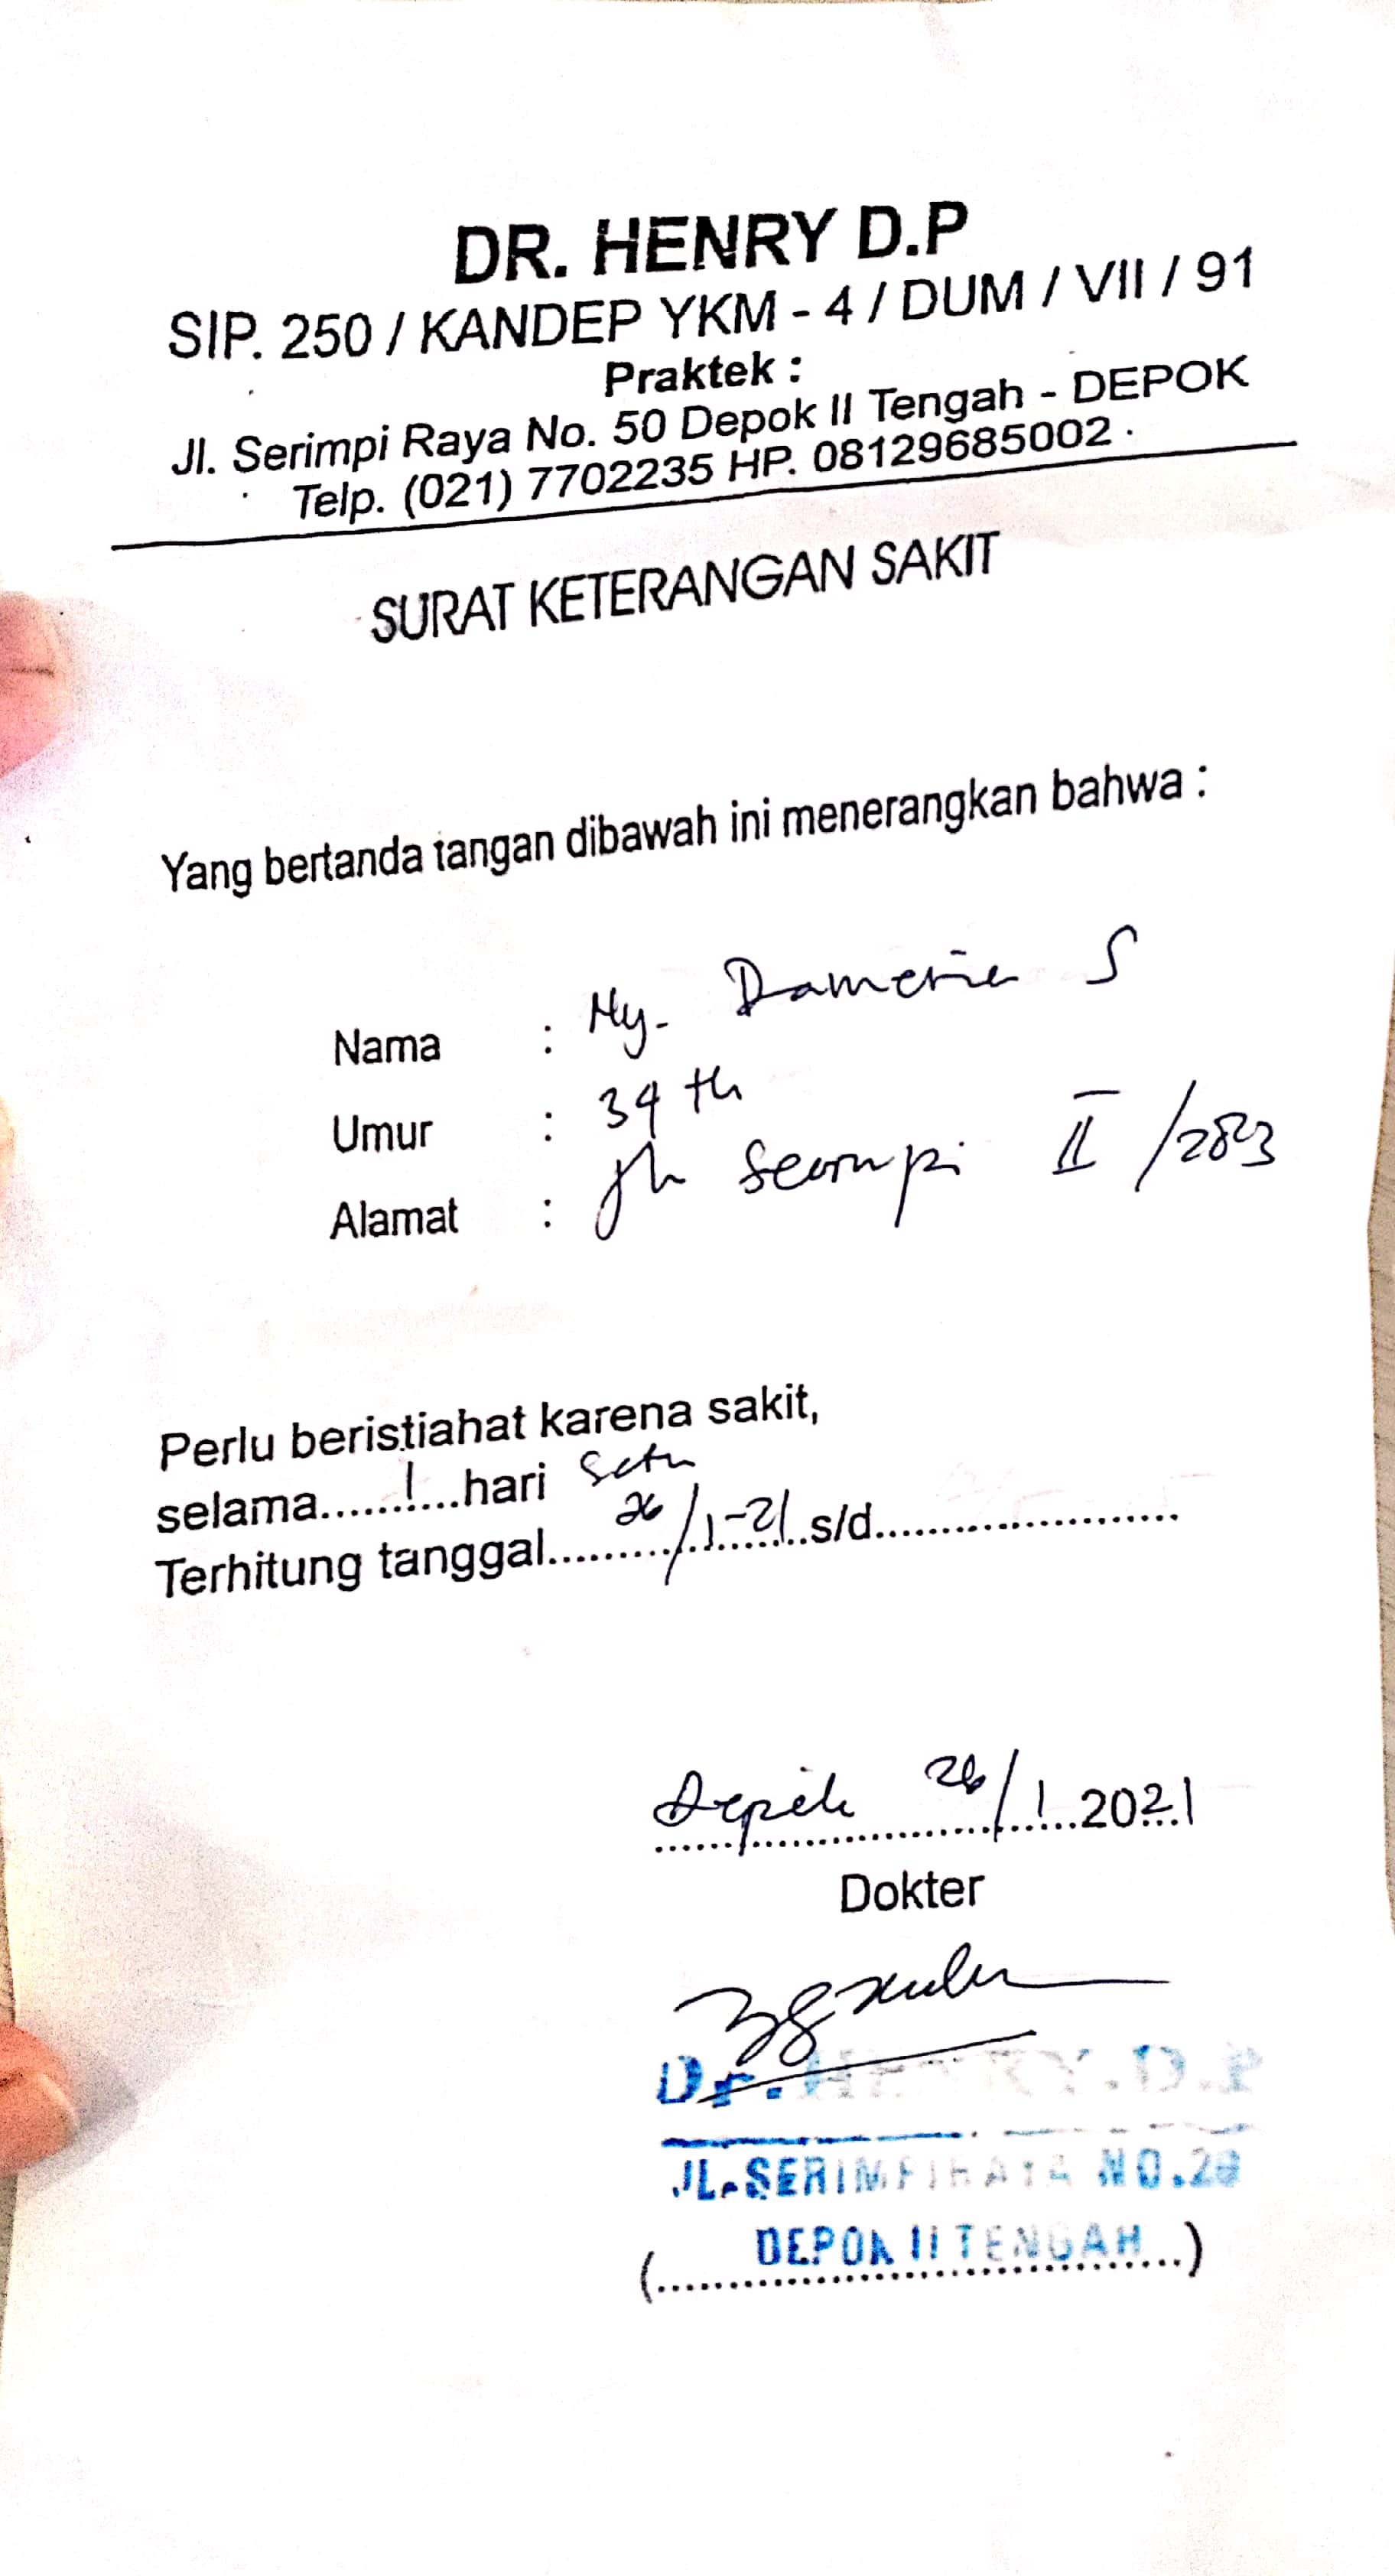 DR. HENRY D.P
SIP. 250 / KANDEP YKM - 4 / DUM / VII / 91
Praktek :
Jl. Serimpi Raya No. 50 Depok II Tengah - DEPOK
Telp. (021) 7702235 HP. 08129685002
SURAT KETERANGAN SAKIT
Yang bertanda tangan dibawah ini menerangkan bahwa :
Nama : Ny. Dameria S
Umur : 34 th
Alamat : II /283
Perlu beristiahat karena sakit,
selama......1...hari Satu
Terhitung tanggal..........26/1-21..s/d......................
Depok 26/1...2021
Dokter
Dr. HENRY.D.P
JL.SERIMPI RAYA NO.
(DEPOK II TENGAH...)